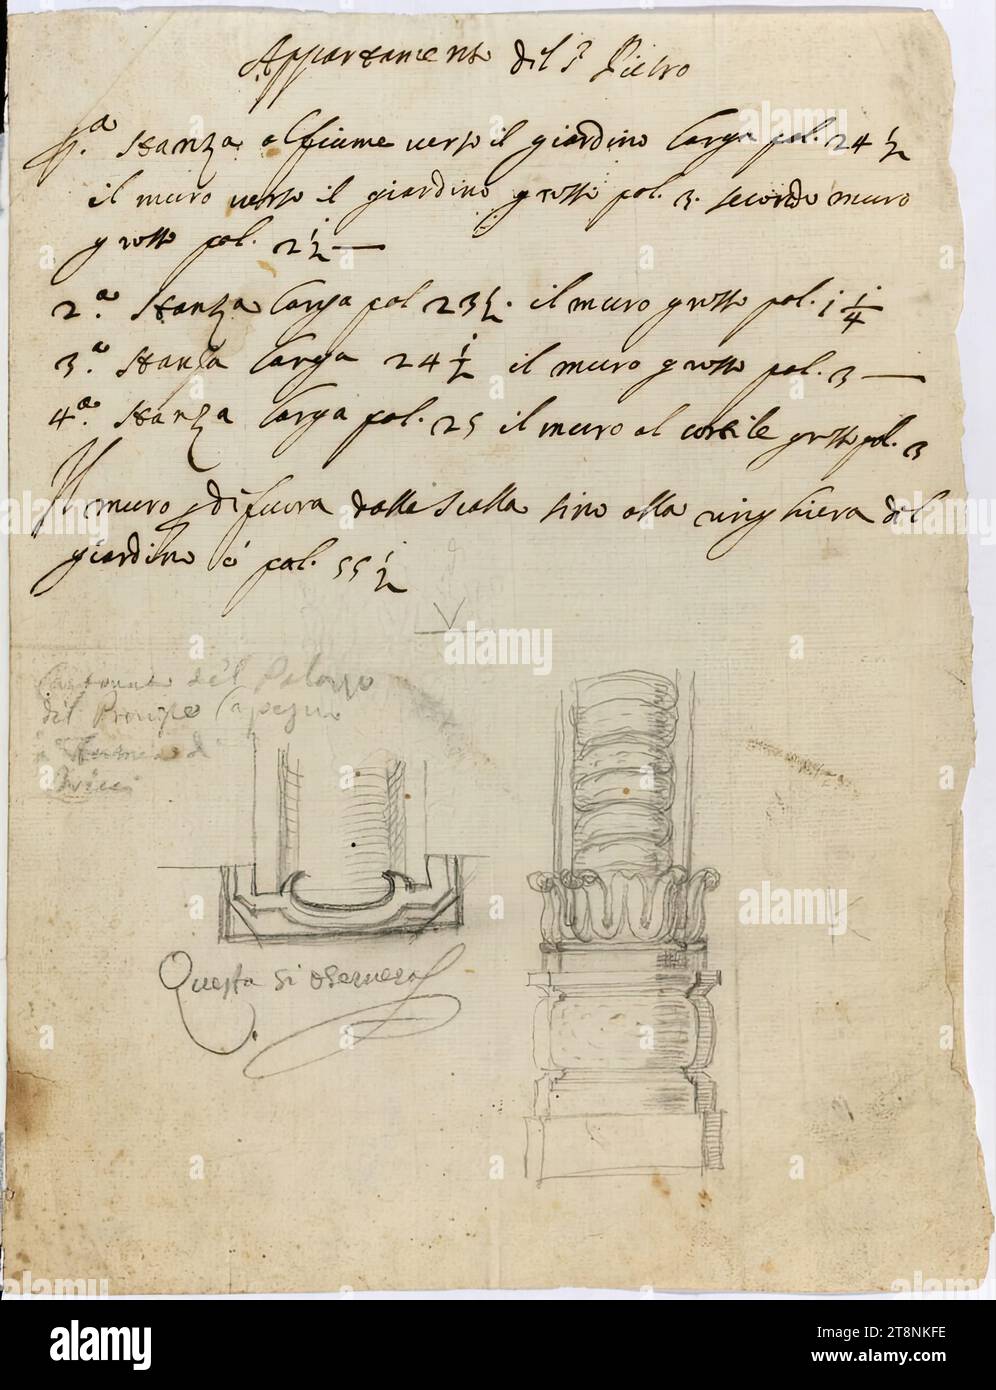 Appartamento del S.r Pietro
p.a stanza al fiume verso il giardino larga pal. 24 1/2
il muro verso il giardino grosso pal. 3. secondo muro
grosso pal. 2 1/2 —
2.a stanza larga pal 23 1/2. il muro grosso pal. 1 1/4
3.a stanza larga 24 1/2 il muro grosso pal. 3 —
4.a stanza larga pal. 25 il muro al cortile grosso pal. 3
Il muro di fuora dalle scalla sino alla ringhiera del
giardino è pal. 55 1/2
del Palazzo
del Principe
Questa si osservera
alamy
Image ID: 2T8NKFE
www.alamy.com